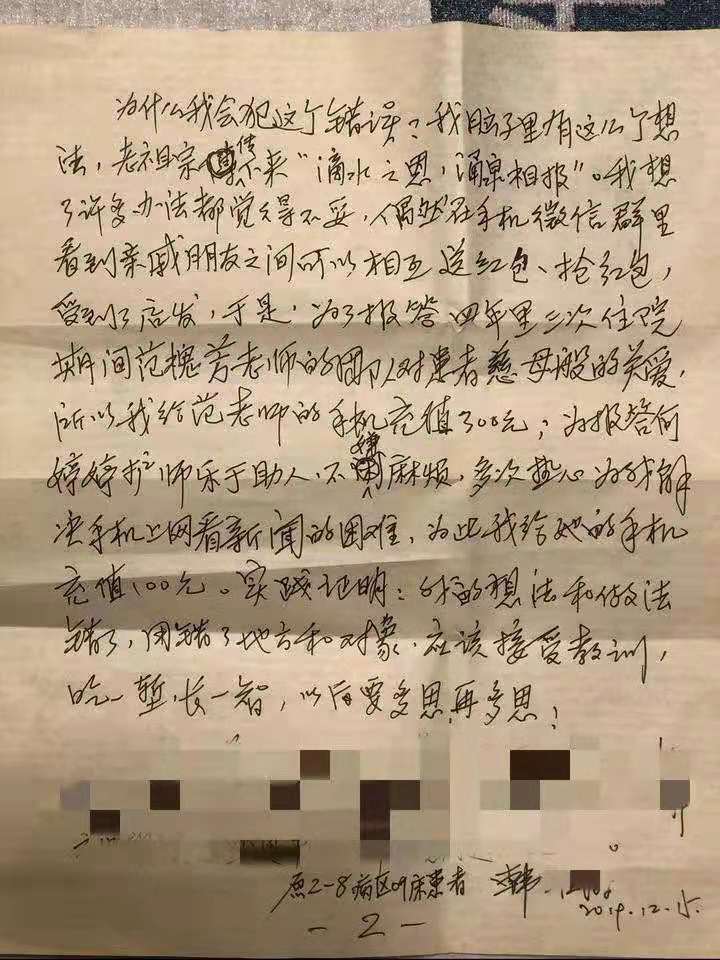 为什么我会犯这个错误？我脑子里有这么个想
法，老祖宗传下来“滴水之恩，涌泉相报”。我想
了许多办法都觉得不妥，偶然在手机微信群里
看到亲戚朋友之间可以相互送红包、抢红包，
受到了启发，于是，为了报答四年里三次住院
期间范槐芳老师的团队对患者慈母般的关爱，
所以我给范老师的手机充值300元；为报答何
婷婷护师乐于助人，不嫌麻烦，多次热心为我解
决手机上网看新闻的困难，为此我给她的手机
充值100元。实践证明：我的想法和做法
错了，用错了地方和对象，应该接受教训，
吃一堑，长一智，以后要多思，再多思！
原2-8病区19床患者 韩
2019.12.15.
-2-